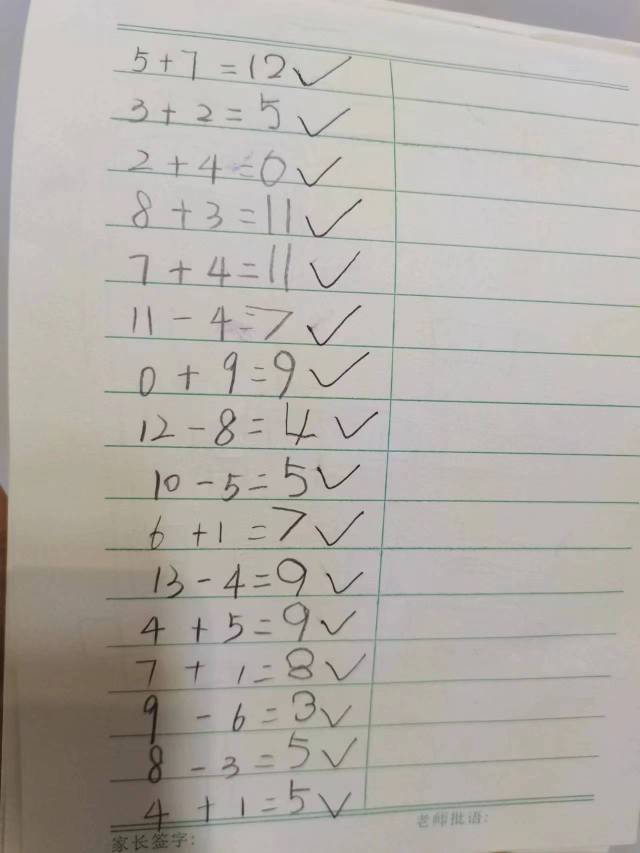 5+7=12✓
3+2=5✓
2+4=0✓
8+3=11✓
7+4=11✓
11-4=7✓
0+9=9✓
12-8=4✓
10-5=5✓
6+1=7✓
13-4=9✓
4+5=9✓
7+1=8✓
9-6=3✓
8-3=5✓
4+1=5✓
家长签字: 老师批语: